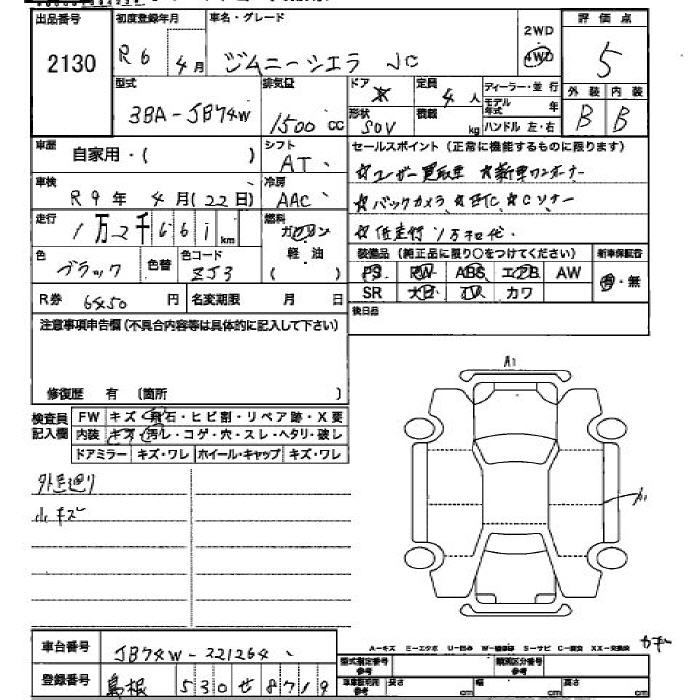 出品番号 初度登録年月 車名・グレード 2WD 評価点
2130 R6年 4月 ジムニーシエラ JC 4WD 5
型式 排気量 ドア 定員 ディーラー・並行 外装 内装
3BA-JB74W 1500 CC 4人 モデル年式 年 B B
形状 SUV 積載 kg ハンドル 左・右
車歴 自家用・( ) シフト AT セールスポイント (正常に機能するものに限ります)
☆ユーザー買取車 ☆新車ワンオーナー
車検 R9年 4月(22日) 冷房 AAC
☆バックカメラ ☆ETC ☆Cソナー
走行 1万2千661km 燃料 ガソリン
軽油
( )
☆低走行 1万キロ代
色 ブラック 色替 色コード ZJ3
装備品 (純正品に限り○をつけてください) 新車保証書
PS PW ABS エアB AW 有・無
SR 本皮 TV カワ
R券 6450円 名変期限 月 日 後日品
注意事項申告欄(不具合内容等は具体的に記入して下さい)
修復歴 有 〔箇所 〕
検査員記入欄
FW キズ・飛石・ヒビ割・リペア跡・X要
内装 キズ・汚レ・コゲ・穴・スレ・ヘタリ・破レ
ドアミラー キズ・ワレ ホイール・キャップ キズ・ワレ
A1
外廻り
小キズ
A1
A-キズ E-エクボ U-凹み W-補修跡 S-サビ C-腐食 XX-交換済
車台番号 JB74W-221264
型式指定番号 参考 類別区分番号 参考
登録番号 島根 530 せ 8719
車庫証明用 参考 長さ cm 幅 cm 高さ cm